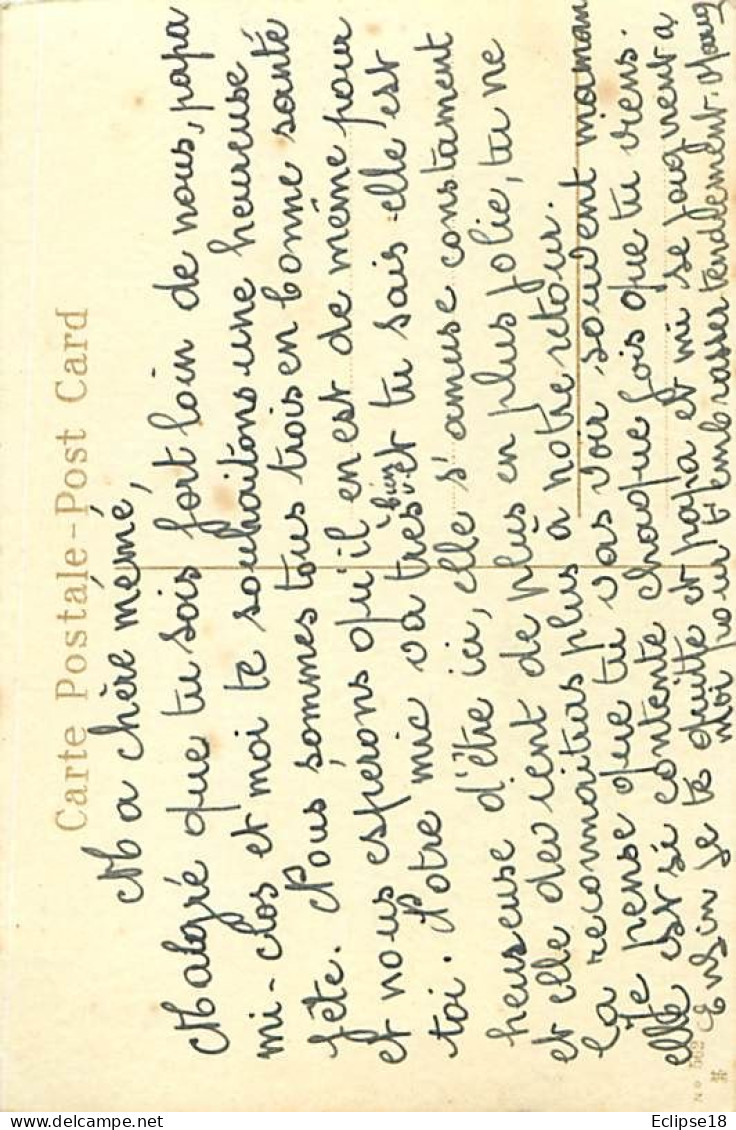 Carte Postale - Post Card
Ma chère mémé,
Malgré que tu sois fort loin de nous, papa
mi-clos et moi te souhaitons une heureuse
fête. Nous sommes tous trois en bonne santé
et nous esperons qu'il en est de même pour
toi. Notre mic va tres bien et tu sais elle est
heureuse d'être ici, elle s'amuse constament
et elle devient de plus en plus jolie, tu ne
la reconnaitras plus à notre retour.
Je pense que tu vas voir souvent maman
elle est si contente chaque fois que tu viens.
Enfin je te quitte et papa et mi se joignent a
moi pour t'embrasser tendrement.
No 562
Eclipse18